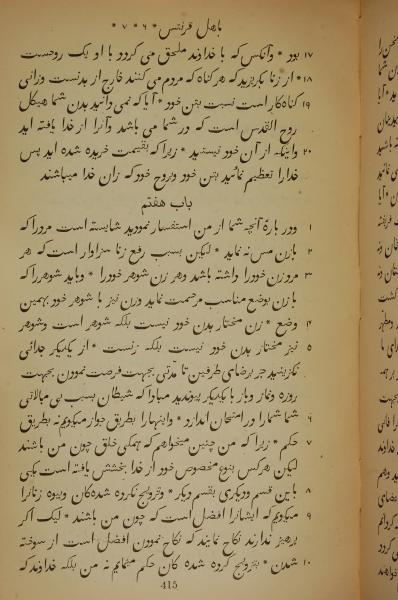 باهل قرنتس * ۶ * ۷ *
۱۷ بود * وآنکس که با خداوند ملحق می گردد با او یک روحست
۱۸ * از زنا بگریزید که هر گناه که مردم می کنند خارج از بدنست وزانی
۱۹ گناه کار است نسبت بتن خود * آیا که نمی دانید بدن شما هیکل
روح القدس است که در شما می باشد وآنرا از خدا یافته اید
۲۰ واینکه از آن خود نیستید * زیرا که بقیمت خریده شده اید پس
خدا را تعظیم نمائید بتن خود وروح خود که زان خدا میباشند
باب هفتم
۱ ودر بارهٔ آنچه شما از من استفسار نمودید شایسته است مرد را که
۲ با زن مس نه نماید * لیکن بسبب رفع زنا سزاوار است که هر
۳ مرد زن خود را داشته باشد وهر زن شوهر خود را * وباید شوهر را که
با زن بوضع مناسب مرحمت نماید وزن نیز با شوهر خود بهمین
۴ وضع * زن مختار بدن خود نیست بلکه شوهر است وشوهر
۵ نیز مختار بدن خود نیست بلکه زنست * از یکدیگر جدائی
نگزینید جز برضای طرفین تا مدتی بجهت فرصت نمودن بجهت
روزه ونماز وباز با یکدیگر پیوندید مبادا که شیطان بسبب بی مبالاتی
۶ شما شما را در امتحان اندازد * واینها را بطریق جواز میگویم نه بطریق
۷ حکم * زیرا که من چنین میخواهم که همگی خلق چون من باشند
لیکن هر کس بنوع مخصوص خود از خدا بخششی یافته است یکی
۸ باین قسم ودیگری بقسم دیگر * وتزویج نکرده شده گان وبیوه زنانرا
۹ میگویم که ایشانرا افضل است که چون من باشند * لیک اگر
پرهیز ندارند نکاح نمایند که نکاح نمودن افضل است از سوخته
۱۰ شدن * بتزویج کرده شده گان حکم مینمایم نه من بلکه خداوند که
415